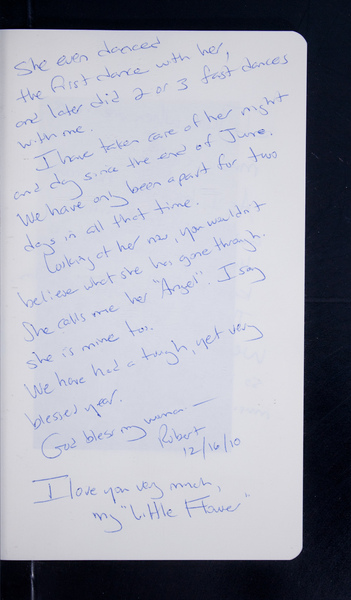 She even danced
the first dance with her,
and later did 2 or 3 fast dances
with me.
I have taken care of her night
and day since the end of June.
We have only been apart for two
days in all that time.
Looking at her now, you wouldn't
believe what she has gone through.
She calls me her "Angel". I say
she is mine too.
We have had a tough, yet very
blessed year.
God bless my woman —
Robert
12/16/10
I love you very much,
my "Little Flower"